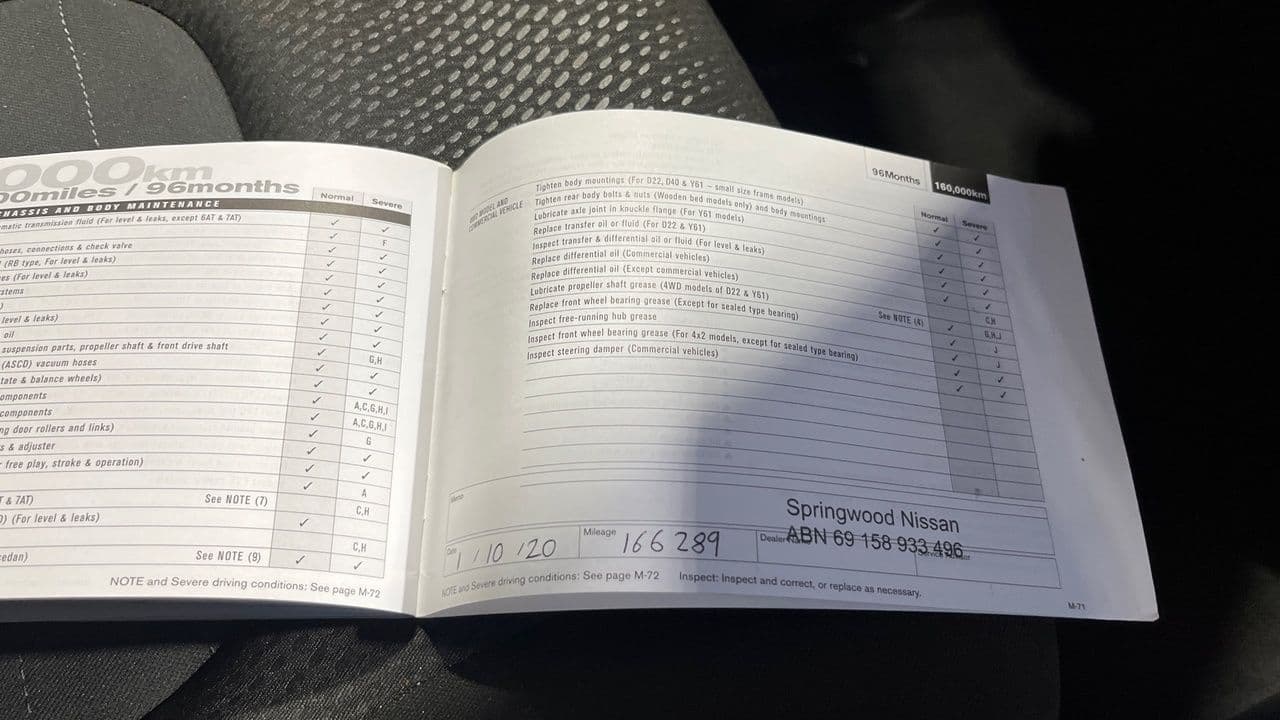 000km
00miles / 96months
Normal
Severe
CHASSIS AND BODY MAINTENANCE
matic transmission fluid (For level & leaks, except 6AT & 7AT)
F
hoses, connections & check valve
(RB type, For level & leaks)
es (For level & leaks)
stems
)
level & leaks)
oil
suspension parts, propeller shaft & front drive shaft
G,H
(ASCD) vacuum hoses
tate & balance wheels)
omponents
A,C,G,H,I
components
A,C,G,H,I
ng door rollers and links)
G
s & adjuster
free play, stroke & operation)
A
T & 7AT) See NOTE (7)
C,H
) (For level & leaks)
C,H
edan) See NOTE (9)
NOTE and Severe driving conditions: See page M-72
96Months
160,000km
Normal
Severe
4WD MODEL AND
COMMERCIAL VEHICLE
Tighten body mountings (For D22, D40 & Y61 – small size frame models)
Tighten rear body bolts & nuts (Wooden bed models only) and body mountings
Lubricate axle joint in knuckle flange (For Y61 models)
Replace transfer oil or fluid (For D22 & Y61)
Inspect transfer & differential oil or fluid (For level & leaks)
Replace differential oil (Commercial vehicles)
C,H
Replace differential oil (Except commercial vehicles) See NOTE (4)
G,H,J
Lubricate propeller shaft grease (4WD models of D22 & Y61)
J
Replace front wheel bearing grease (Except for sealed type bearing)
J
Inspect free-running hub grease
Inspect front wheel bearing grease (For 4x2 models, except for sealed type bearing)
Inspect steering damper (Commercial vehicles)
Memo
Date
1 / 10 / 20
Mileage
166 289
Dealer
Springwood Nissan
ABN 69 158 933 496
NOTE and Severe driving conditions: See page M-72 Inspect: Inspect and correct, or replace as necessary.
M-71